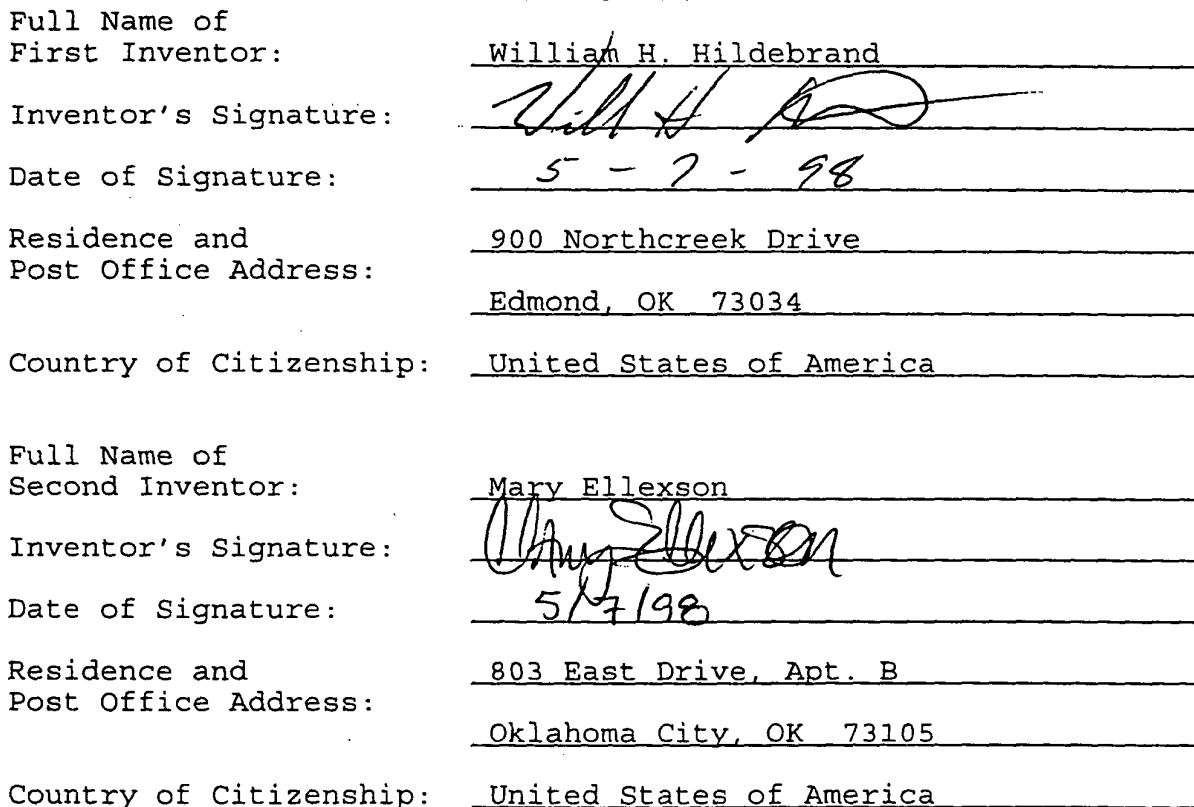 Full Name of
First Inventor: William H. Hildebrand
Inventor's Signature: Will H
Date of Signature: 5 - 7 - 98
Residence and 900 Northcreek Drive
Post Office Address:
Edmond, OK 73034
Country of Citizenship: United States of America
Full Name of
Second Inventor: Mary Ellexson
Inventor's Signature: Mary Ellexson
Date of Signature: 5/7/98
Residence and 803 East Drive, Apt. B
Post Office Address:
Oklahoma City, OK 73105
Country of Citizenship: United States of America